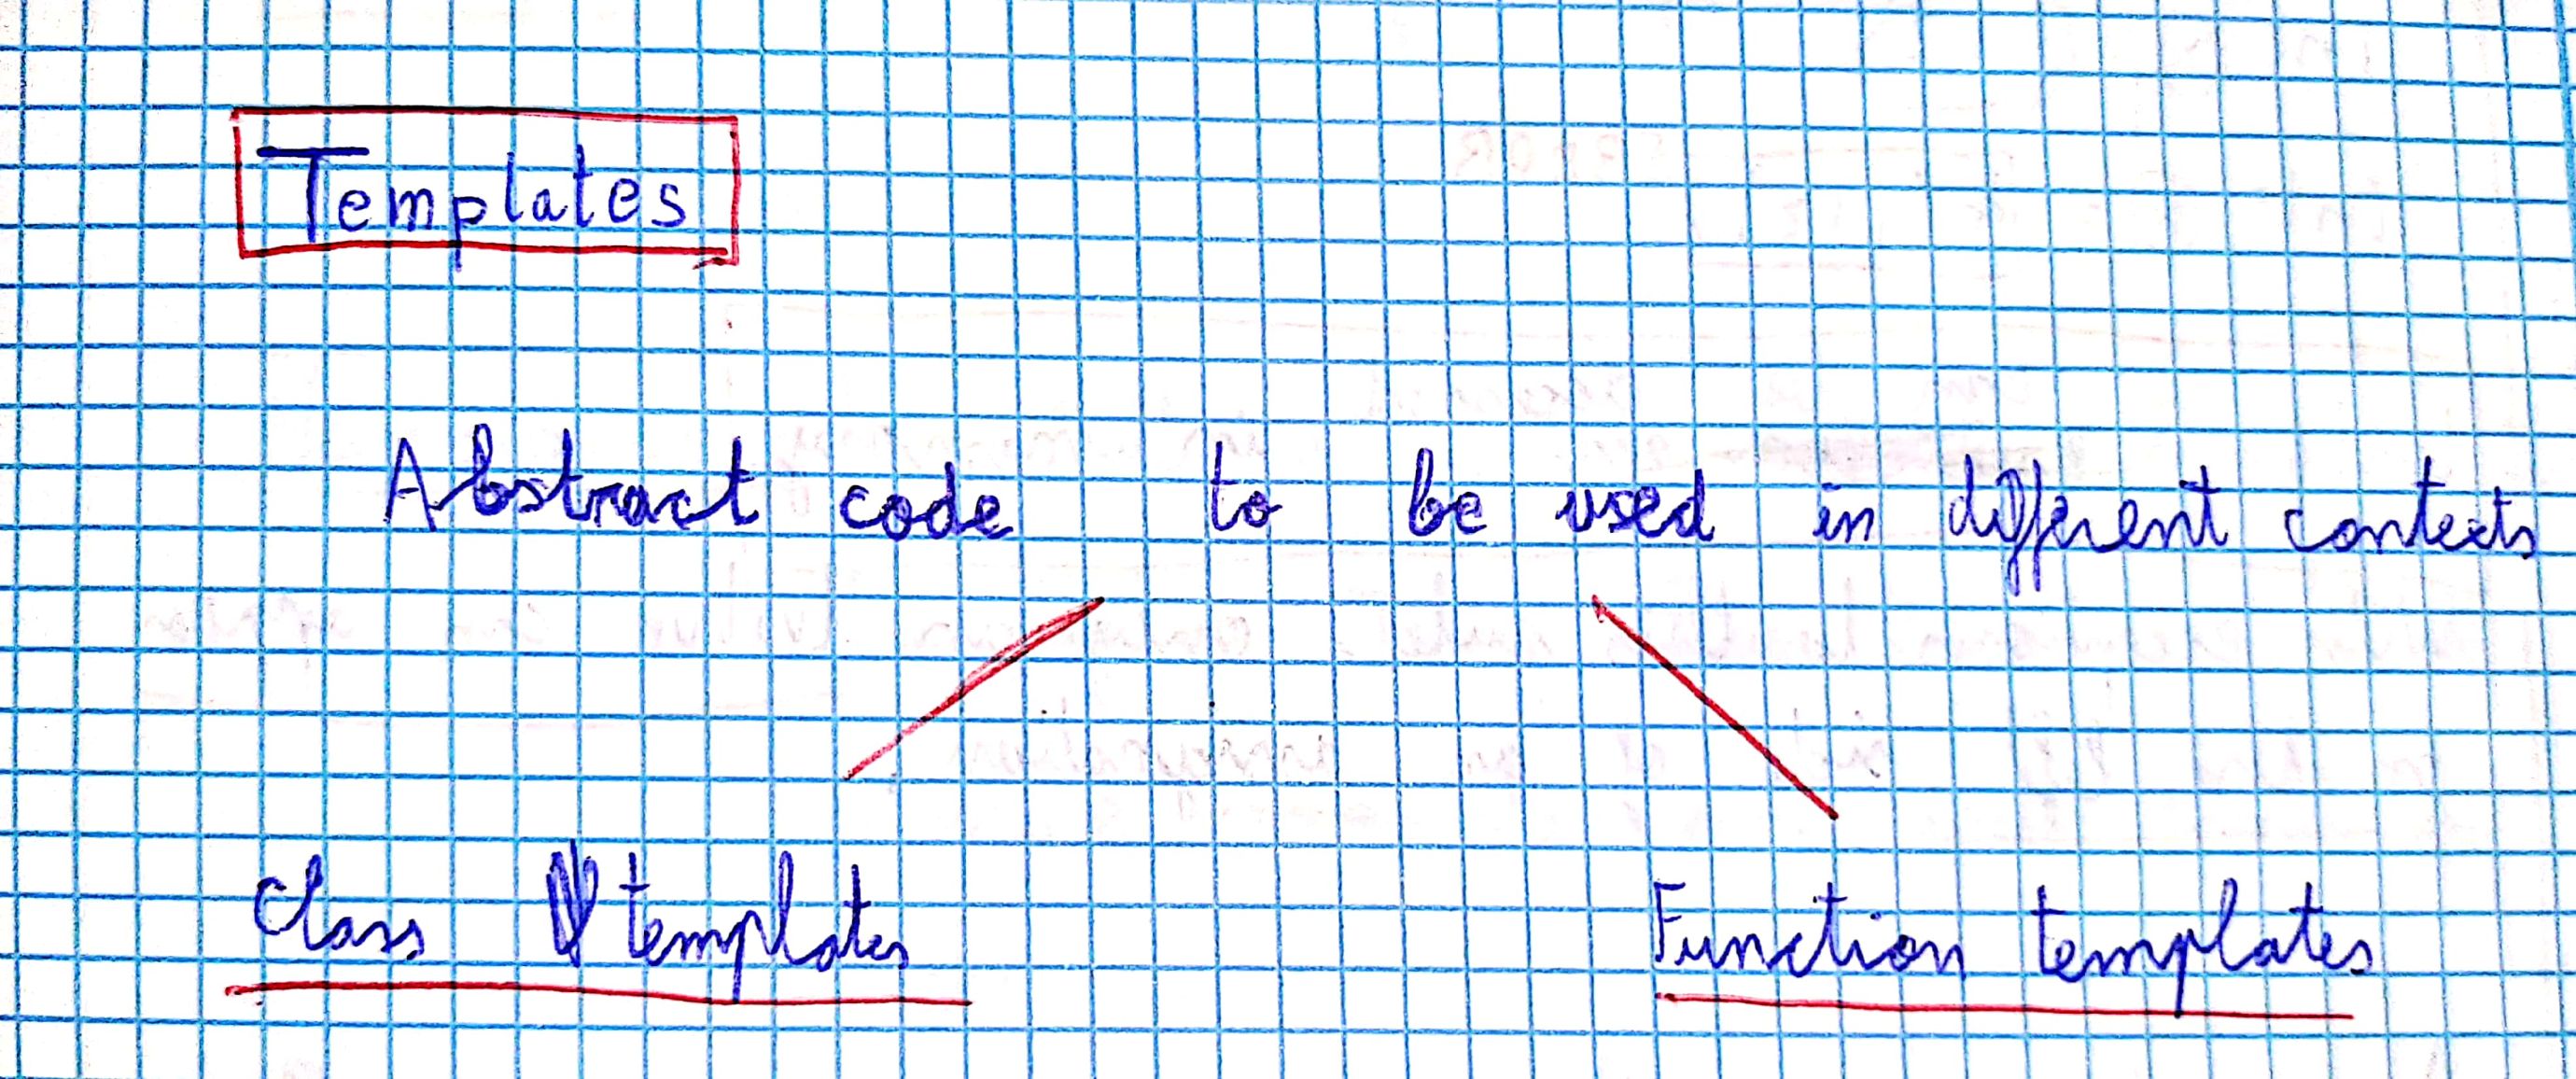 Templates
Abstract code to be used in different contexts
Class templates Function templates